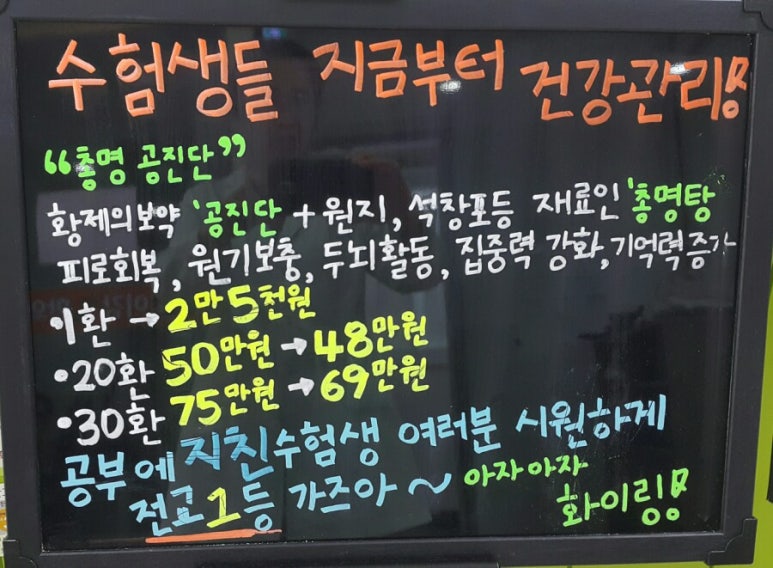 수험생들 지금부터 건강관리!
“총명 공진단”
황제의보약 '공진단' + 원지, 석창포등 재료인 '총명탕'
피로회복, 원기보충, 두뇌활동, 집중력 강화, 기억력증가
•1환 → 2만 5천원
•20환 50만원 → 48만원
•30환 75만원 → 69만원
공부에 지친수험생 여러분 시원하게
전교1등 가즈아~ 아자아자
화이링!